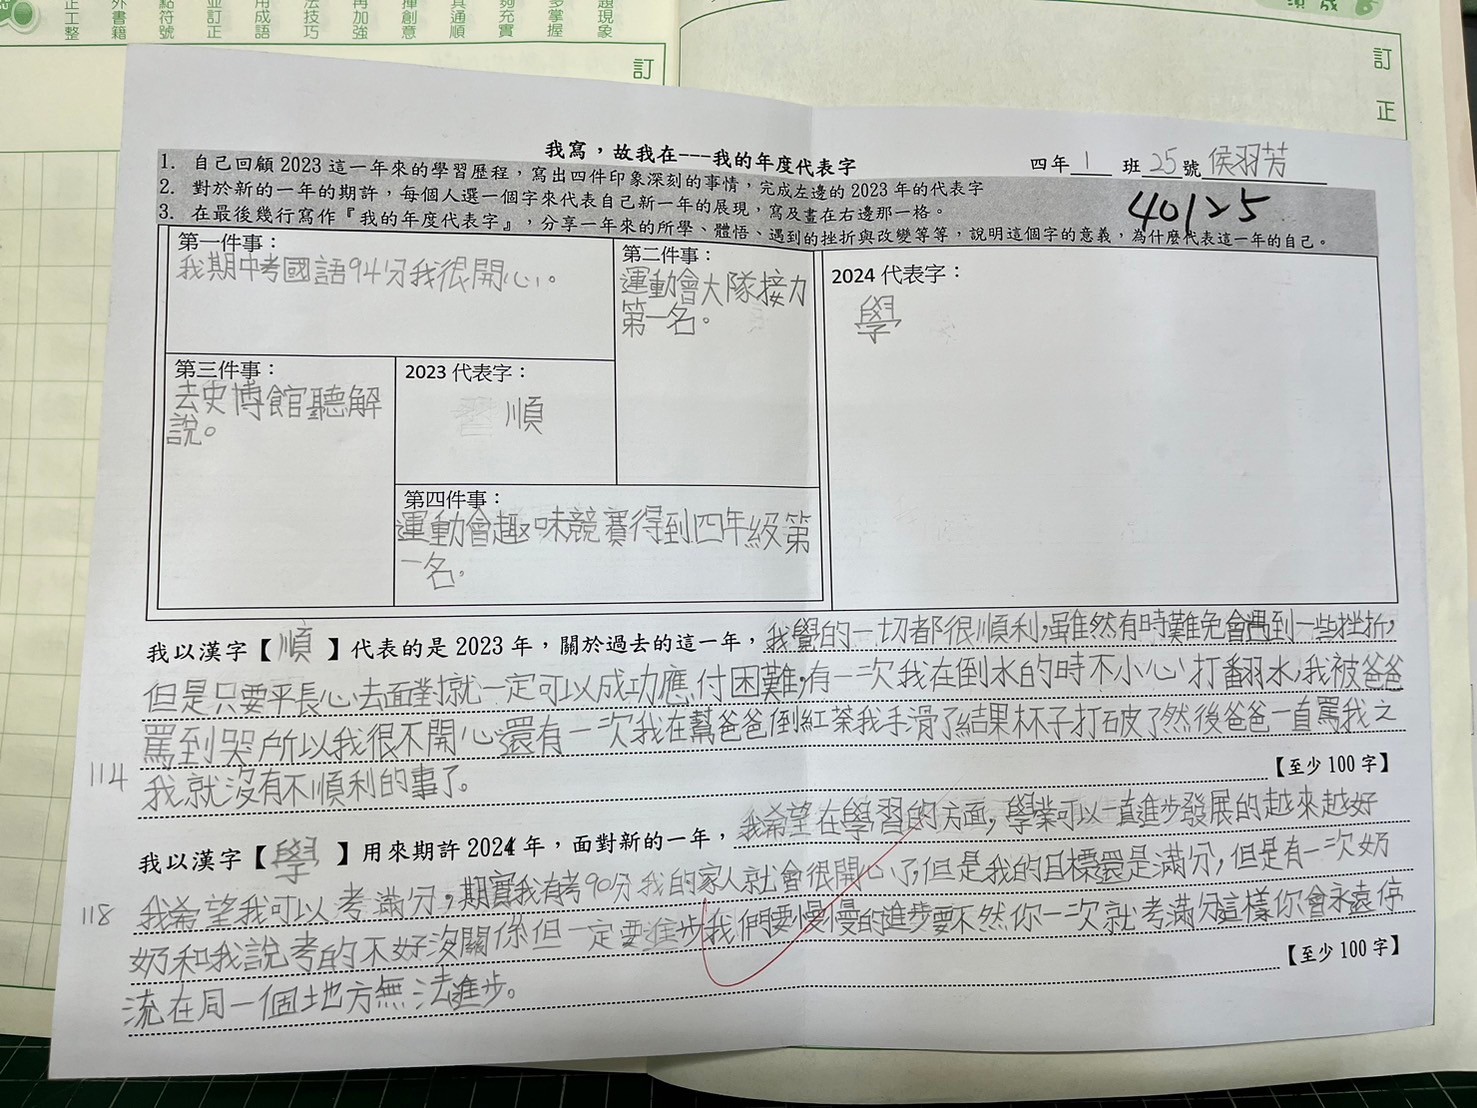 訂
訂
正
我寫，故我在---我的年度代表字
四年 1 班 25 號 侯羽芳
40125
1. 自己回顧 2023 這一年來的學習歷程，寫出四件印象深刻的事情，完成左邊的 2023 年的代表字
2. 對於新的一年的期許，每個人選一個字來代表自己新一年的展現，寫及畫在右邊那一格。
3. 在最後幾行寫作『我的年度代表字』，分享一年來的所學、體悟、遇到的挫折與改變等等，說明這個字的意義，為什麼代表這一年的自己。
第一件事：
我期中考國語94分我很開心。
第二件事：
運動會大隊接力
第一名。
2024 代表字：
學
第三件事：
去史博館聽解
說。
2023 代表字：
順
第四件事：
運動會趣味競賽得到四年級第
一名。
我以漢字【順】代表的是 2023 年，關於過去的這一年，我覺的一切都很順利，雖然有時難免會遇到一些挫折，
但是只要平長心去面對就一定可以成功應付困難，有一次我在倒水的時不小心打翻水，我被爸爸
罵到哭所以我很不開心還有一次我在幫爸爸倒紅茶我手滑了結果杯子打破了然後爸爸一直罵我之
114 我就沒有不順利的事了。
【至少 100 字】
我以漢字【學】用來期許 2024 年，面對新的一年，我希望在學習的方面，學業可以一直進步發展的越來越好
118 我希望我可以考滿分，期實我有考90分我的家人就會很開心了，但是我的目標還是滿分，但是有一次奶
奶和我說考的不好沒關係但一定要進步我們要慢慢的進步要不然你一次就考滿分這樣你會永遠停
流在同一個地方無法進步。
【至少 100 字】